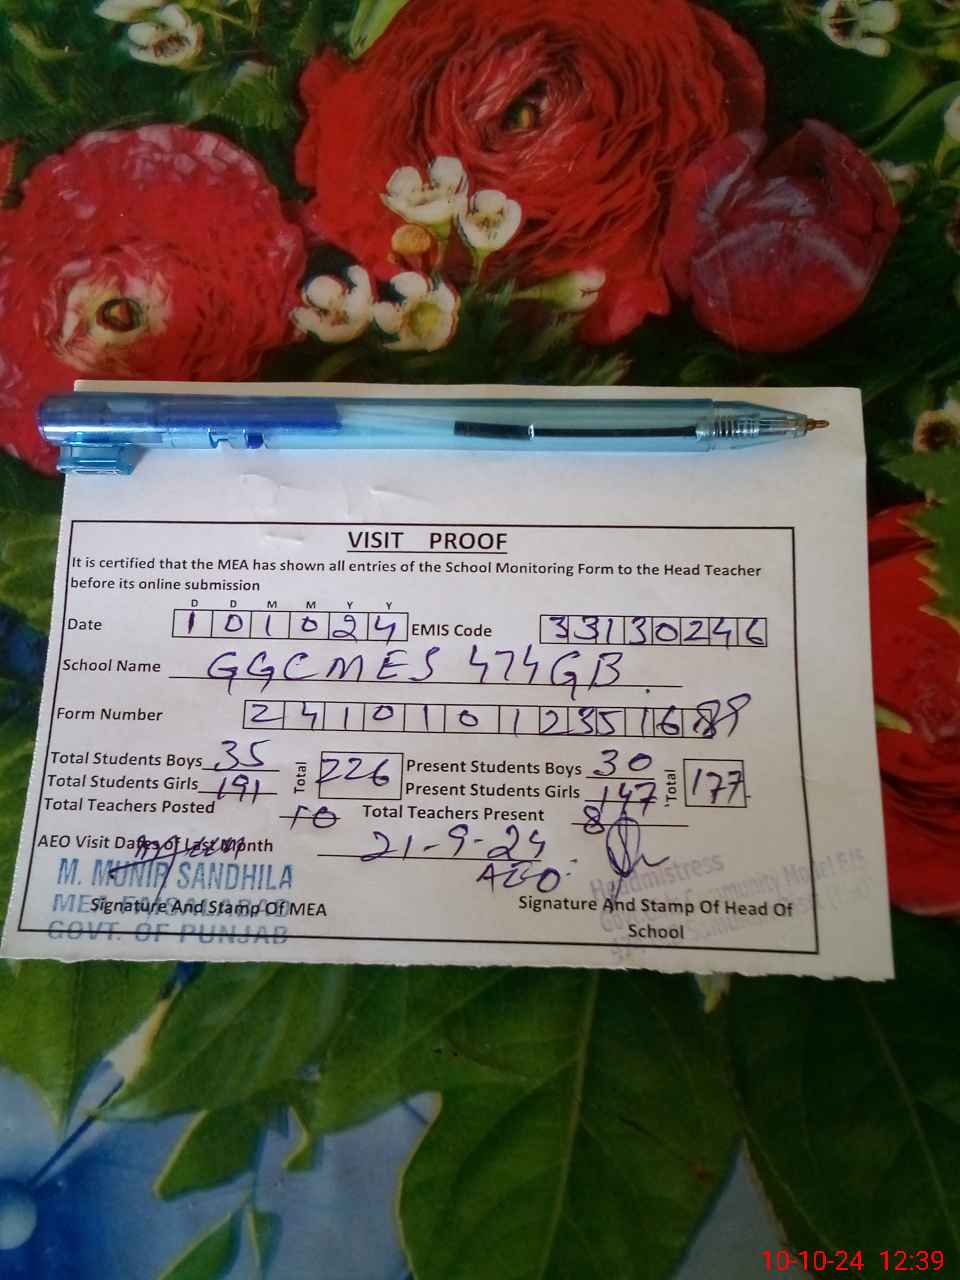 VISIT PROOF
It is certified that the MEA has shown all entries of the School Monitoring Form to the Head Teacher
before its online submission
D D M M Y Y
Date 1 0 1 0 2 4 EMIS Code 3 3 1 3 0 2 4 6
School Name GGCMES 474GB
Form Number 2 4 1 0 1 0 1 2 3 5 1 6
Total Students Boys 35 Total 226 Present Students Boys 30 Total 177
Total Students Girls 191 Present Students Girls 147
Total Teachers Posted 10 Total Teachers Present 8
AEO Visit Dates of Last Month 21-9-24
AEO
M. MUNIR SANDHILA
MEA FAISALABAD
GOVT. OF PUNJAB
Signature And Stamp Of MEA
Headmistress
Govt. Community Model E/S
Signature And Stamp Of Head Of
School
10-10-24 12:39